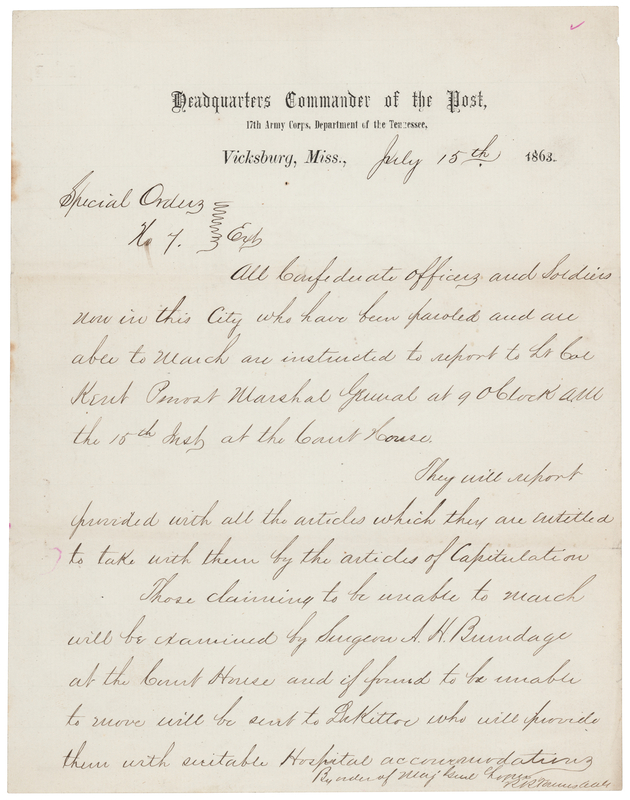 Headquarters Commander of the Post,
17th Army Corps, Department of the Tennessee,
Vicksburg, Miss., July 15th 1863.
Special Orders
No 7. Ext
All Confederate officers and Soldiers
now in this City who have been paroled and are
able to March are instructed to report to Lt Col
Kent Provost Marshal General at 9 OClock AM
the 15th Inst at the Court House.
They will report
provided with all the articles which they are entitled
to take with them by the articles of Capitulation
Those claiming to be unable to march
will be examined by Surgeon A. H. Brundage
at the Court House and if found to be unable
to move will be sent to Dr Kittoe who will provide
them with suitable Hospital accommodations
By order of Maj Genl Logan